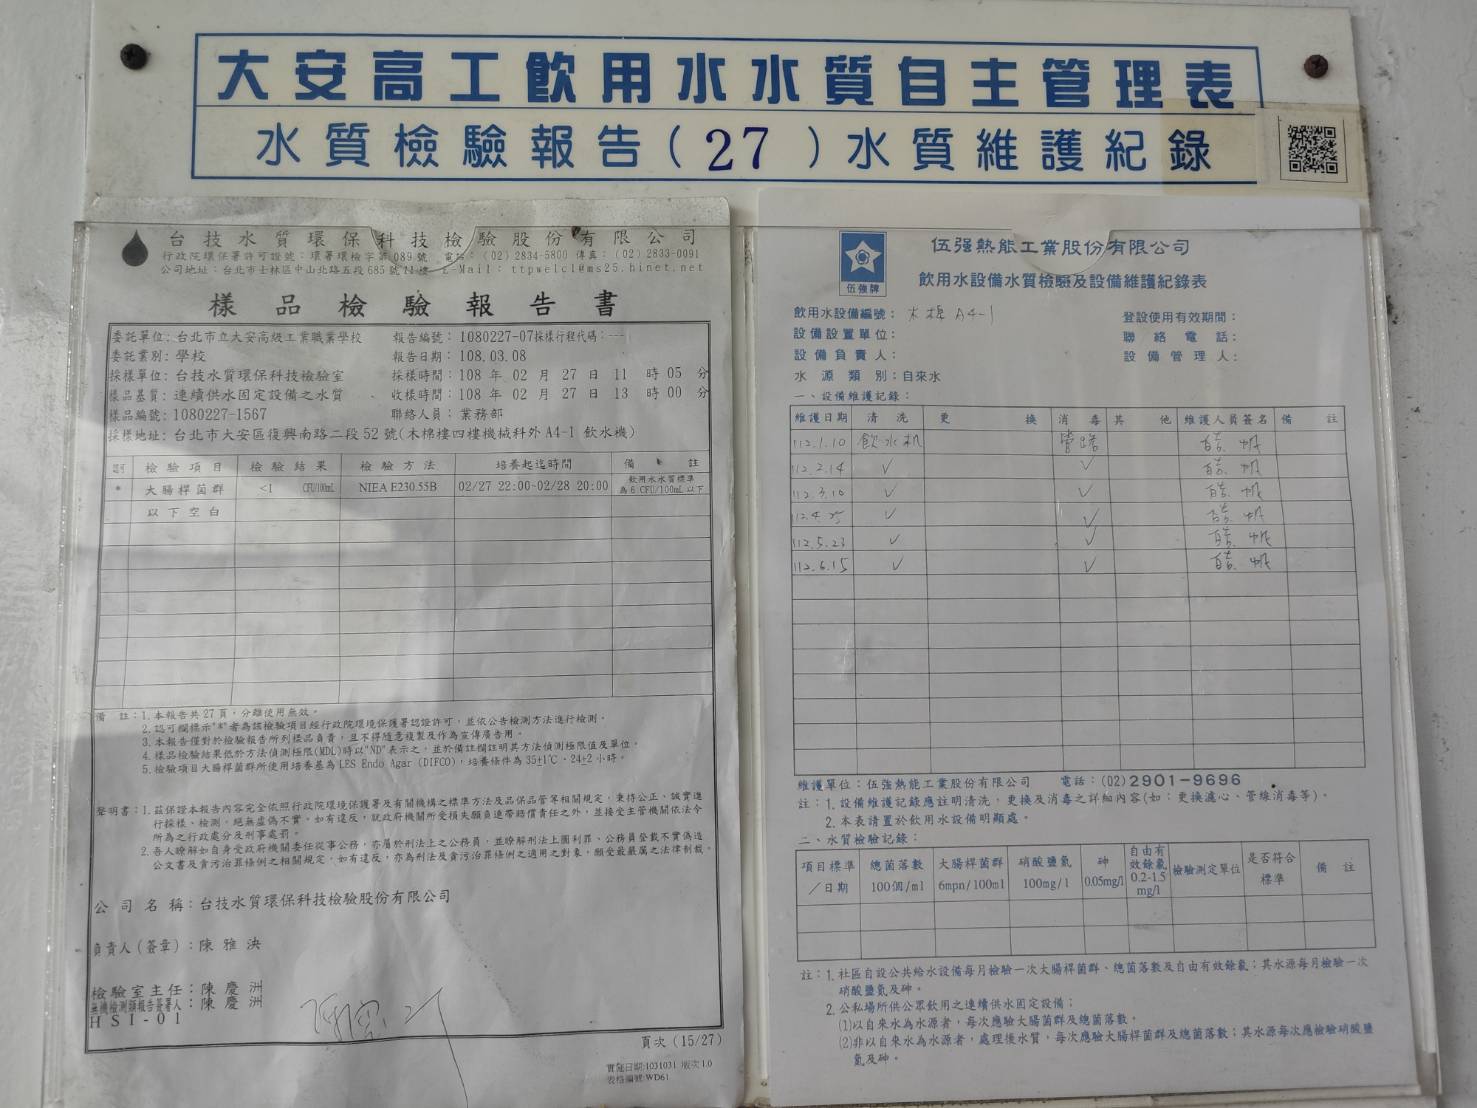 大安高工飲用水水質自主管理表
水質檢驗報告(27)水質維護紀錄
台技水質環保科技檢驗股份有限公司
行政院環保署許可證號:環署環檢字第089號 電話:(02)2834-5800 傳真:(02)2833-0091
公司地址:台北市士林區中山北路五段685號 樓 E-Mail: ttpwelcl@ms25.hinet.net
樣品檢驗報告書
委託單位:台北市立大安高級工業職業學校 報告編號:1080227-07採樣行程代碼:---
委託業別:學校 報告日期:108.03.08
採樣單位:台技水質環保科技檢驗室 採樣時間:108 年 02 月 27 日 11 時 05 分
樣品基質:連續供水固定設備之水質 收樣時間:108 年 02 月 27 日 13 時 00 分
樣品編號:1080227-1567 聯絡人員:業務部
採樣地址:台北市大安區復興南路二段52號(木棉樓四樓機械科外A4-1 飲水機)
認可 檢驗項目 檢驗結果 檢驗方法 培養起迄時間 備註
* 大腸桿菌群 <1 CFU/100mL NIEA E230.55B 02/27 22:00-02/28 20:00 飲用水水質標準為6 CFU/100mL以下
以下空白
備 註:1.本報告共27頁,分離使用無效。
2.認可欄標示"*"者為該檢驗項目經行政院環境保護署認證許可,並依公告檢測方法進行檢測。
3.本報告僅對於檢驗報告所列樣品負責,且不得隨意複製及作為宣傳廣告用。
4.樣品檢驗結果低於方法偵測極限(MDL)時以"ND"表示之,並於備註欄註明其方法偵測極限值及單位。
5.檢驗項目大腸桿菌群所使用培養基為LES Endo Agar (DIFCO),培養條件為35±1℃、24±2小時。
聲明書:1.茲保證本報告內容完全依照行政院環境保護署及有關機構之標準方法及品保品管等相關規定,秉持公正、誠實進
行採樣、檢測。絕無虛偽不實,如有違反,就政府機關所受損失願負連帶賠償責任之外,並接受主管機關依法令
所為之行政處分及刑事處罰。
2.吾人瞭解如自身受政府機關委任從事公務,亦屬於刑法上之公務員,並瞭解刑法上圖利罪、公務員登載不實偽造
公文書及貪污治罪條例之相關規定,如有違反,亦為刑法及貪污治罪條例之適用之對象,願受最嚴厲之法律制裁。
公司名稱:台技水質環保科技檢驗股份有限公司
負責人(簽章):陳雅泱
檢驗室主任:陳慶洲
無機檢測類報告簽署人:陳慶洲
HSI-01
頁次(15/27)
實施日期:1031031 版次1.0
表格編號:WD61
伍強牌
伍强熱能工業股份有限公司
飲用水設備水質檢驗及設備維護紀錄表
飲用水設備編號:木棉 A4-1 登設使用有效期間:
設備設置單位: 聯絡電話:
設備負責人: 設備管理人:
水源類別:自來水
一、設備維護記錄:
維護日期 清洗 更換 消毒 其他 維護人員簽名 備註
112.1.10 飲水机 管路
112.2.14 ✓ ✓
112.3.10 ✓ ✓
112.4.25 ✓ ✓
112.5.23 ✓ ✓
112.6.15 ✓ ✓
維護單位:伍強熱能工業股份有限公司 電話:(02)2901-9696
註:1.設備維護記錄應註明清洗,更換及消毒之詳細內容(如:更換濾心、管線消毒等)。
2.本表請置於飲用水設備明顯處。
二、水質檢驗記錄:
項目標準/日期 總菌落數100個/ml 大腸桿菌群6mpn/100ml 硝酸鹽氮100mg/l 砷0.05mg/l 自由有效餘氯0.2-1.5mg/l 檢驗測定單位 是否符合標準 備註
註:1.社區自設公共給水設備每月檢驗一次大腸桿菌群、總菌落數及自由有效餘氯;其水源每月檢驗一次
硝酸鹽氮及砷。
2.公私場所供公眾飲用之連續供水固定設備:
(1)以自來水為水源者,每次應驗大腸菌群及總菌落數。
(2)非以自來水為水源者,處理後水質,每次應驗大腸桿菌群及總菌落數;其水源每次應檢驗硝酸鹽
氮及砷。